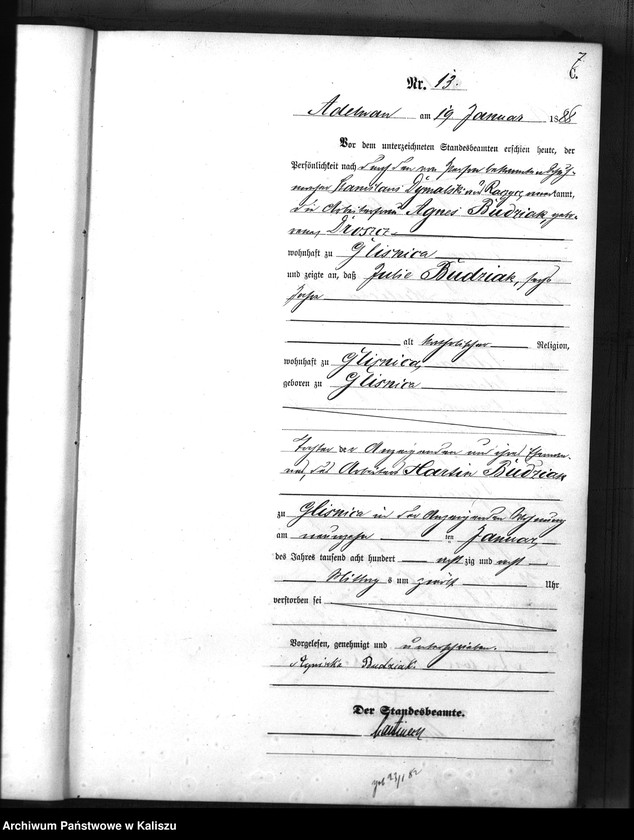 7
6.
Nr. 13.
Adelnau am 19 Januar 1888
Vor dem unterzeichneten Standesbeamten erschien heute, der
Persönlichkeit nach durch den von Person bekannten
Stanislaus Dymalski aus anerkannt,
die Agnes Budziak, gebo-
renes Drosz
wohnhaft zu Glisnica
und zeigte an, daß Julie Budziak, sechs
Jahre
alt katholischer Religion,
wohnhaft zu Glisnica,
geboren zu Glisnica
Tochter der Anzeigenden und ihres Eheman-
nes, des Arbeiters Martin Budziak
zu Glisnica in der Anzeigenden Wohnung
am neunzehn ten Januar
des Jahres tausend acht hundert achtzig und acht
Mittags um zwölf Uhr
verstorben sei
Vorgelesen, genehmigt und unterschrieben.
Agniska Budziak
Der Standesbeamte.
Archiwum Państwowe w Kaliszu